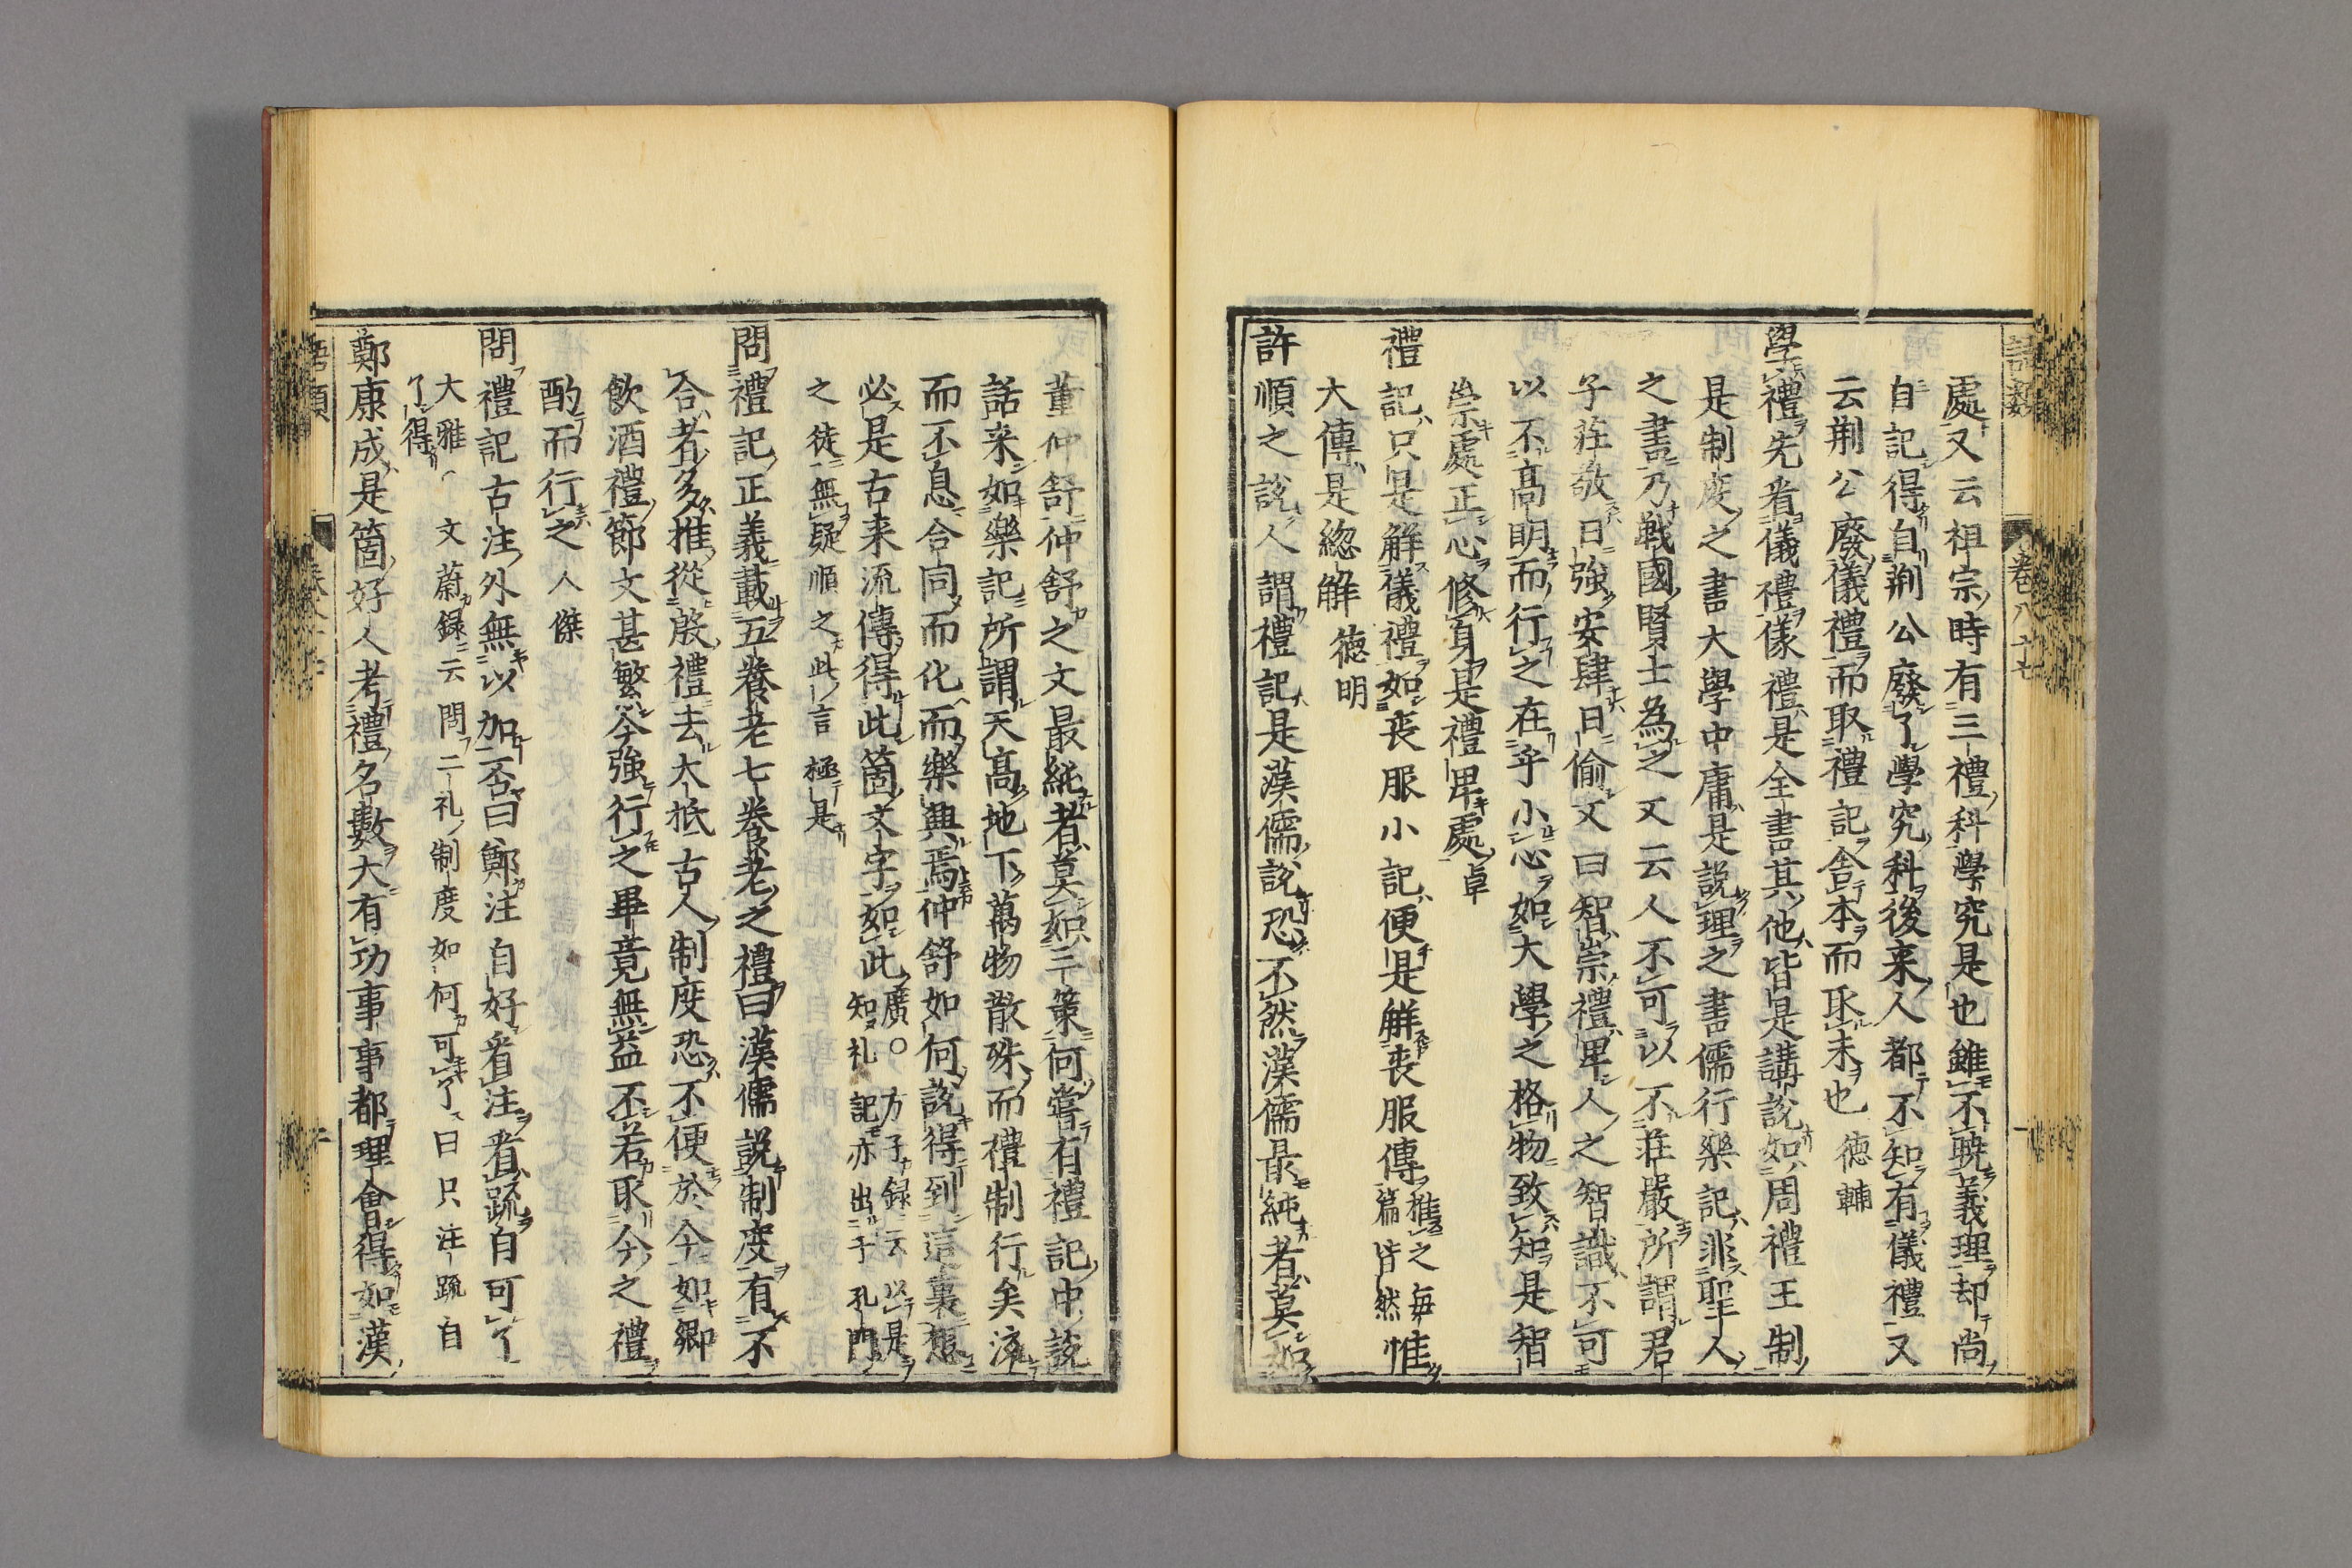 語類
卷八十七
處又云祖宗時有三禮科學究是也雖不曉義理却尚
自記得自荆公廢了學究科後来人都不知有儀禮又
云荆公廢儀禮而取禮記舍本而取末也德輔
學禮先看儀禮儀禮是全書其他皆是講說如周禮王制
是制度之書大學中庸是説理之書儒行樂記非聖人
之書乃戰國賢士為之又云人不可以不莊嚴所謂君
子莊敬日強安肆日偷又曰智崇禮卑人之智識不可
以不高明而行之在乎小心如大學之格物致知是智
崇處正心修身是禮卑處卓
禮記只是解儀禮如喪服小記便是解喪服傳推之每篇皆然惟
大傳是緫解德明
許順之說人謂禮記是漢儒說恐不然漢儒最純者莫如
董仲舒仲舒之文最純者莫如三策何嘗有禮記中說
話来如樂記所謂天高地下萬物散殊而禮制行矣流
而不息合同而化而樂興焉仲舒如何說得到這裏想
必是古来流傳得此箇文字如此廣〇方子録云以是知礼記亦出于孔門
之徒無疑順之此言極是
問禮記正義載五養老七養老之禮曰漢儒説制度有不
合者多推從殷禮去大抵古人制度恐不便於今如鄉
飲酒禮節文甚繁今強行之畢竟無益不若取今之禮
酌而行之人傑
問禮記古注外無以加否曰鄭注自好看注看疏自可了
大雅 文蔚録云問二礼制度如何可了曰只注疏自
了得
鄭康成是箇好人考禮名數大有功事事都理會得如漢
語類